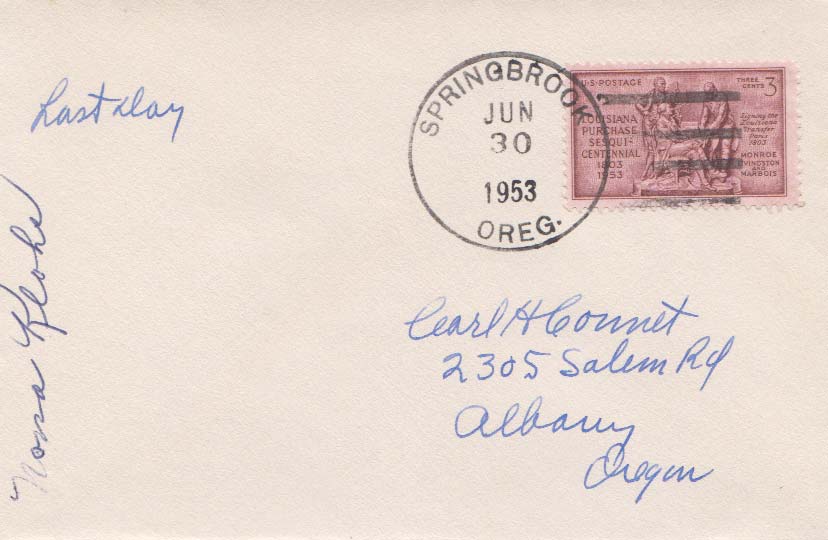 Last day
Nona Klohs
SPRINGBROOK
JUN
30
1953
OREG.
U.S. POSTAGE
THREE CENTS 3
LOUISIANA
PURCHASE
SESQUI-
CENTENNIAL
1803
1953
Signing the
Louisiana
Transfer
Paris
1803
MONROE
LIVINGSTON
AND
MARBOIS
Carl H Connet
2305 Salem Rd
Albany
Oregon